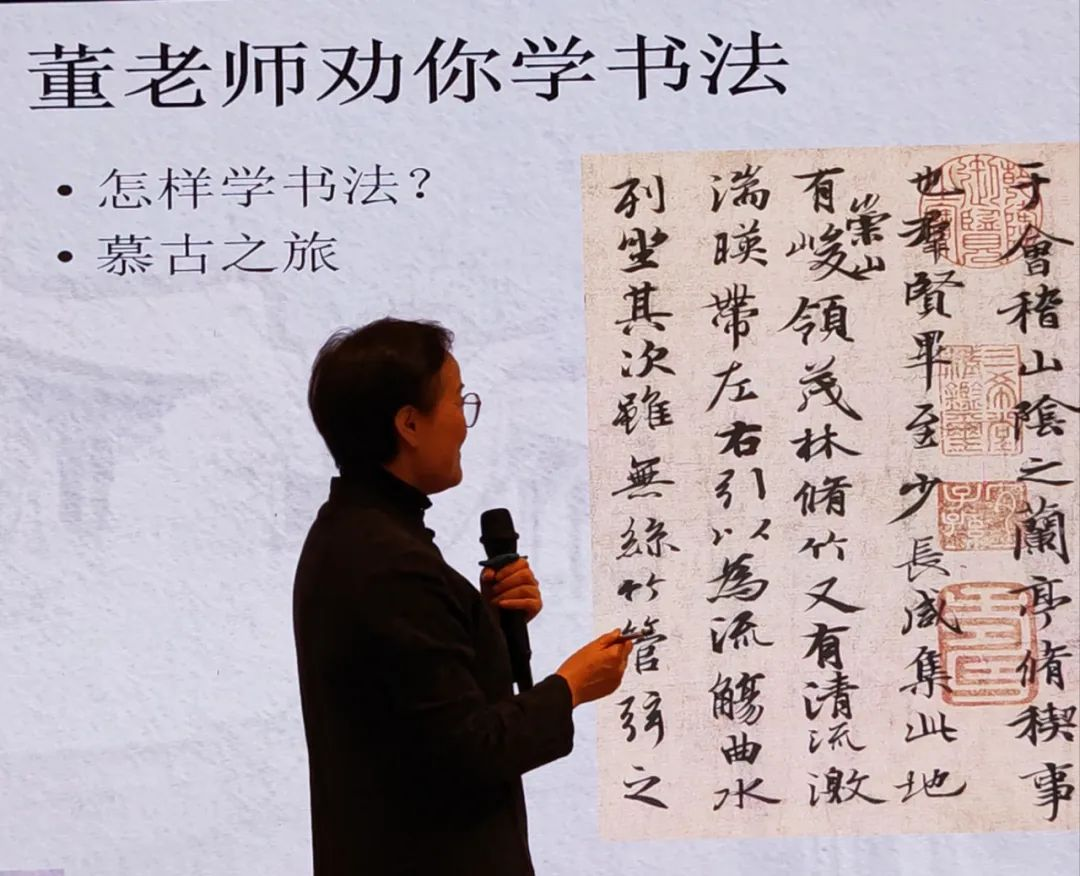 董老师劝你学书法
• 怎样学书法？
• 慕古之旅
于會稽山陰之蘭亭脩稧事
也羣賢畢至少長咸集此地
有崇山峻領茂林脩竹又有清流激
湍暎帶左右引以為流觴曲水
列坐其次雖無絲竹管弦之